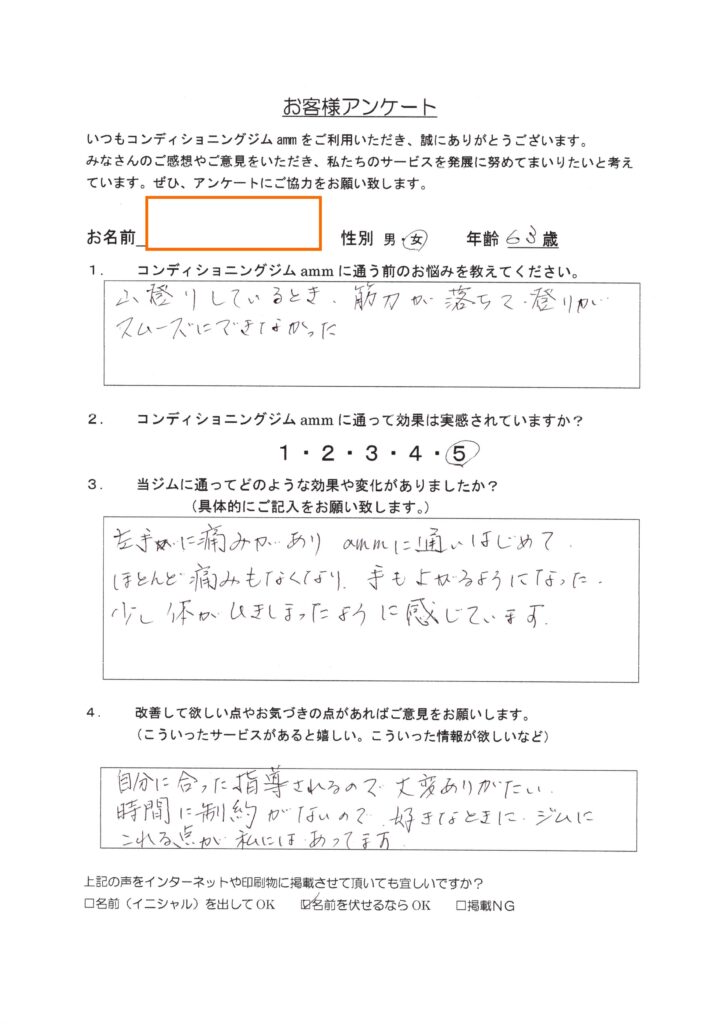 お客様アンケート
いつもコンディショニングジム amm をご利用いただき、誠にありがとうございます。
みなさんのご感想やご意見をいただき、私たちのサービスを発展に努めてまいりたいと考え
ています。ぜひ、アンケートにご協力をお願い致します。
お名前 性別 男・女 年齢 63 歳
1. コンディショニングジム amm に通う前のお悩みを教えてください。
山登りしているとき、筋力が落ちて、登りが
スムーズにできなかった
2. コンディショニングジム amm に通って効果は実感されていますか？
1・2・3・4・5
3. 当ジムに通ってどのような効果や変化がありましたか？
（具体的にご記入をお願い致します。）
左手に痛みがあり ammに通いはじめて、
ほとんど痛みもなくなり、手も上がるようになった。
少し体がひきしまったように感じています。
4. 改善して欲しい点やお気づきの点があればご意見をお願いします。
（こういったサービスがあると嬉しい。こういった情報が欲しいなど）
自分に合った指導されるので大変ありがたい。
時間に制約がないので、好きなときに、ジムに
これる点が私にはあってます。
上記の声をインターネットや印刷物に掲載させて頂いても宜しいですか？
□名前（イニシャル）を出して OK ☑名前を伏せるなら OK □掲載ＮＧ